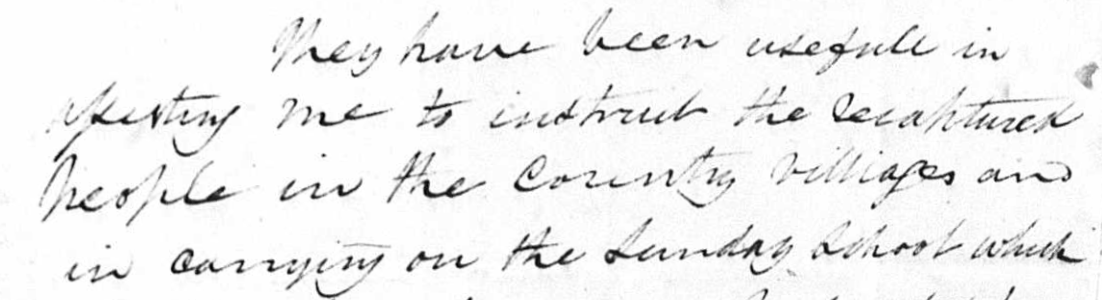 They have been usefull in
assisting me to instruct the recaptured
people in the Country villiages and
in carrying on the Sunday School which